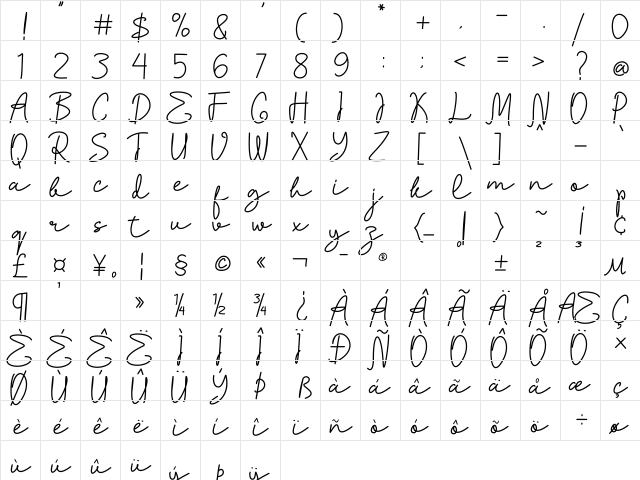 ! " # $ % & ' ( ) * + , - . / 0
1 2 3 4 5 6 7 8 9 : ; < = > ? @
A B C D E F G H I J K L M N O P
Q R S T U V W X Y Z [ \ ] ^ _ `
a b c d e f g h i j k l m n o p
q r s t u v w x y z { | } ~ ¡ ¢
£ ¤ ¥ ¦ § © « ¬ ­¯ ® ° ± ² ³ µ
¶ ¹ º » ¼ ½ ¾ ¿ À Á Â Ã Ä Å Æ Ç
È É Ê Ë Ì Í Î Ï Ð Ñ Ò Ó Ô Õ Ö ×
Ø Ù Ú Û Ü Ý Þ ß à á â ã ä å æ ç
è é ê ë ì í î ï ñ ò ó ô õ ö ÷ ø
ù ú û ü ý þ ÿ